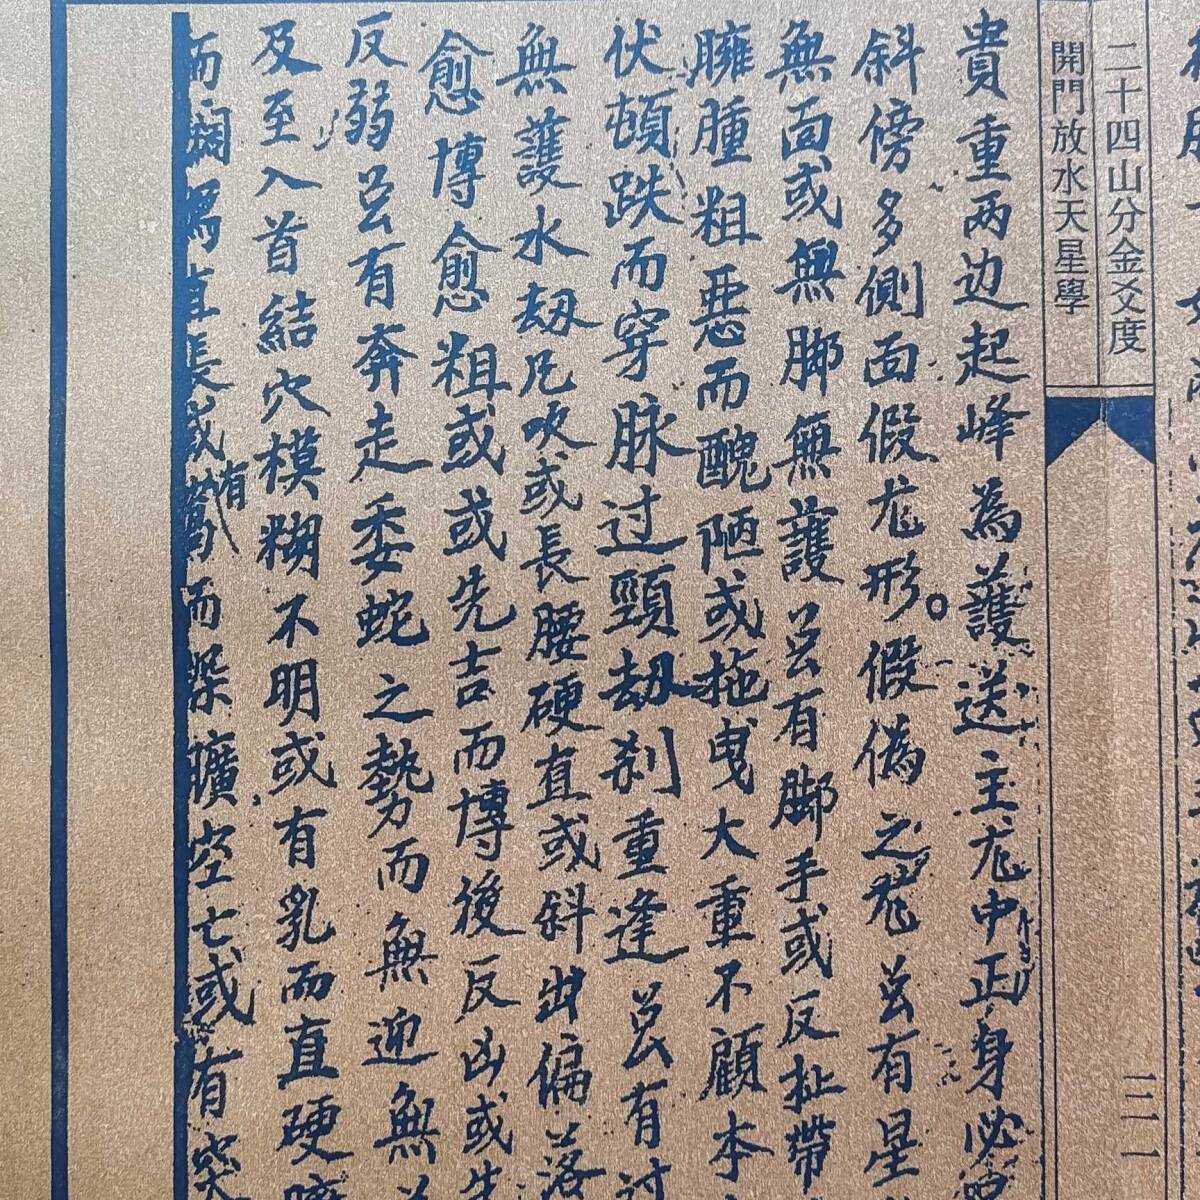 二十四山分金爻度
開門放水天星學
三一
貴重两边起峰為護送主龙中正身必
斜傍多側面假龙形。假偽之龙㒷有星
無面或無脚無護㒷有脚手或反扯帶
臃腫粗惡而醜陋或拖曳大重不顧本
伏頓跌而穿脉过頸劫刹重逢㒷有过
無護水劫凹吹或長腰硬直或斜出偏落
愈博愈粗或或先吉而博後反凶或先
反弱㒷有奔走委蛇之勢而無迎無
及至入首結穴模糊不明或有乳而直硬
而 直長或有 而 曠空亡或有突